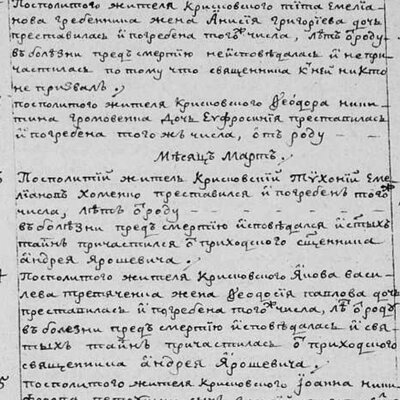 Посполитого жителя Крисковского Тита Емелиа
нова Гребенника жена Анисия Григориева дочь
преставилась и погребена того числа, лѣтъ ѿ роду
въ болѣзни предъ смертию неисповѣдалась и непри
частилась потому что священника к ней никто
не призвалъ.
посполитого жителя Крисковского Ѳеодора Ники
тина Громовенка дочь Еуфросиния преставилась
и погребена того жъ числа, ѿ роду
Мѣсяцъ Мартъ.
Посполитий житель Крисковский Тѵхоний Еме
лиановъ Хоменко преставился и погребенъ того
числа, лѣтъ ѿ роду
въ болѣзни предъ смертию исповѣдался и с͠тыхъ
таинъ причастился ѿ приходского с͠щенника
Андрея Ярошевича.
Посполитого жителя Крисковского Якова Васи
лева жена Ѳеодосия Павлова дочь
преставилась и погребена того числа, лѣтъ ѿ роду
въ болезни предъ смертию исповѣдалась и свя
тыхъ таинъ причастилась ѿ приходского
священника Андрея Ярошевича.
посполитого жителя Крисковского Іоанна Ники